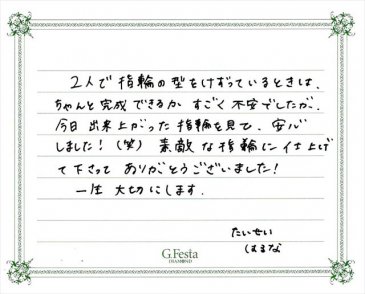 2人で指輪の型をけずっているときは、
ちゃんと完成できるか すごく不安でしたが、
今日 出来上がった指輪を見て、安心
しました！（笑） 素敵な指輪に仕上げ
て下さって ありがとうございました！
一生 大切にします。
たいせい
はるな
G.Festa
DIAMOND